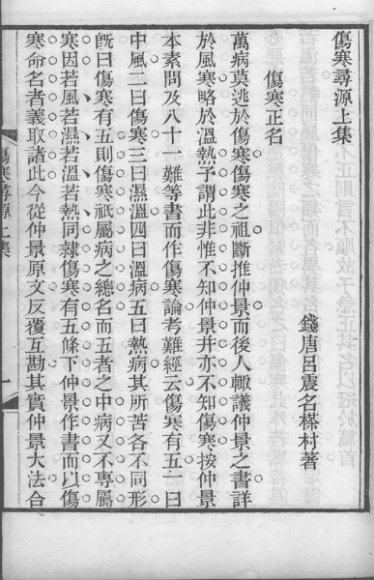 傷寒尋源上集
錢唐呂震名𣗳村著
傷寒正名
萬病莫逃於傷寒傷寒之祖斷推仲景而後人輙議仲景之書詳
於風寒略於溫熱予謂此非惟不知仲景并亦不知傷寒按仲景
本素問及八十一難等書而作傷寒論考難經云傷寒有五一曰
中風二曰傷寒三曰濕溫四曰溫病五曰熱病其所苦各不同形
旣曰傷寒有五則傷寒祇屬病之總名而五者之中病又不專屬
寒因若風若濕若溫若熱同隸傷寒有五條下仲景作書而以傷
寒命名者義取諸此今從仲景原文反覆互勘其實仲景大法合
傷寒尋源上集
一